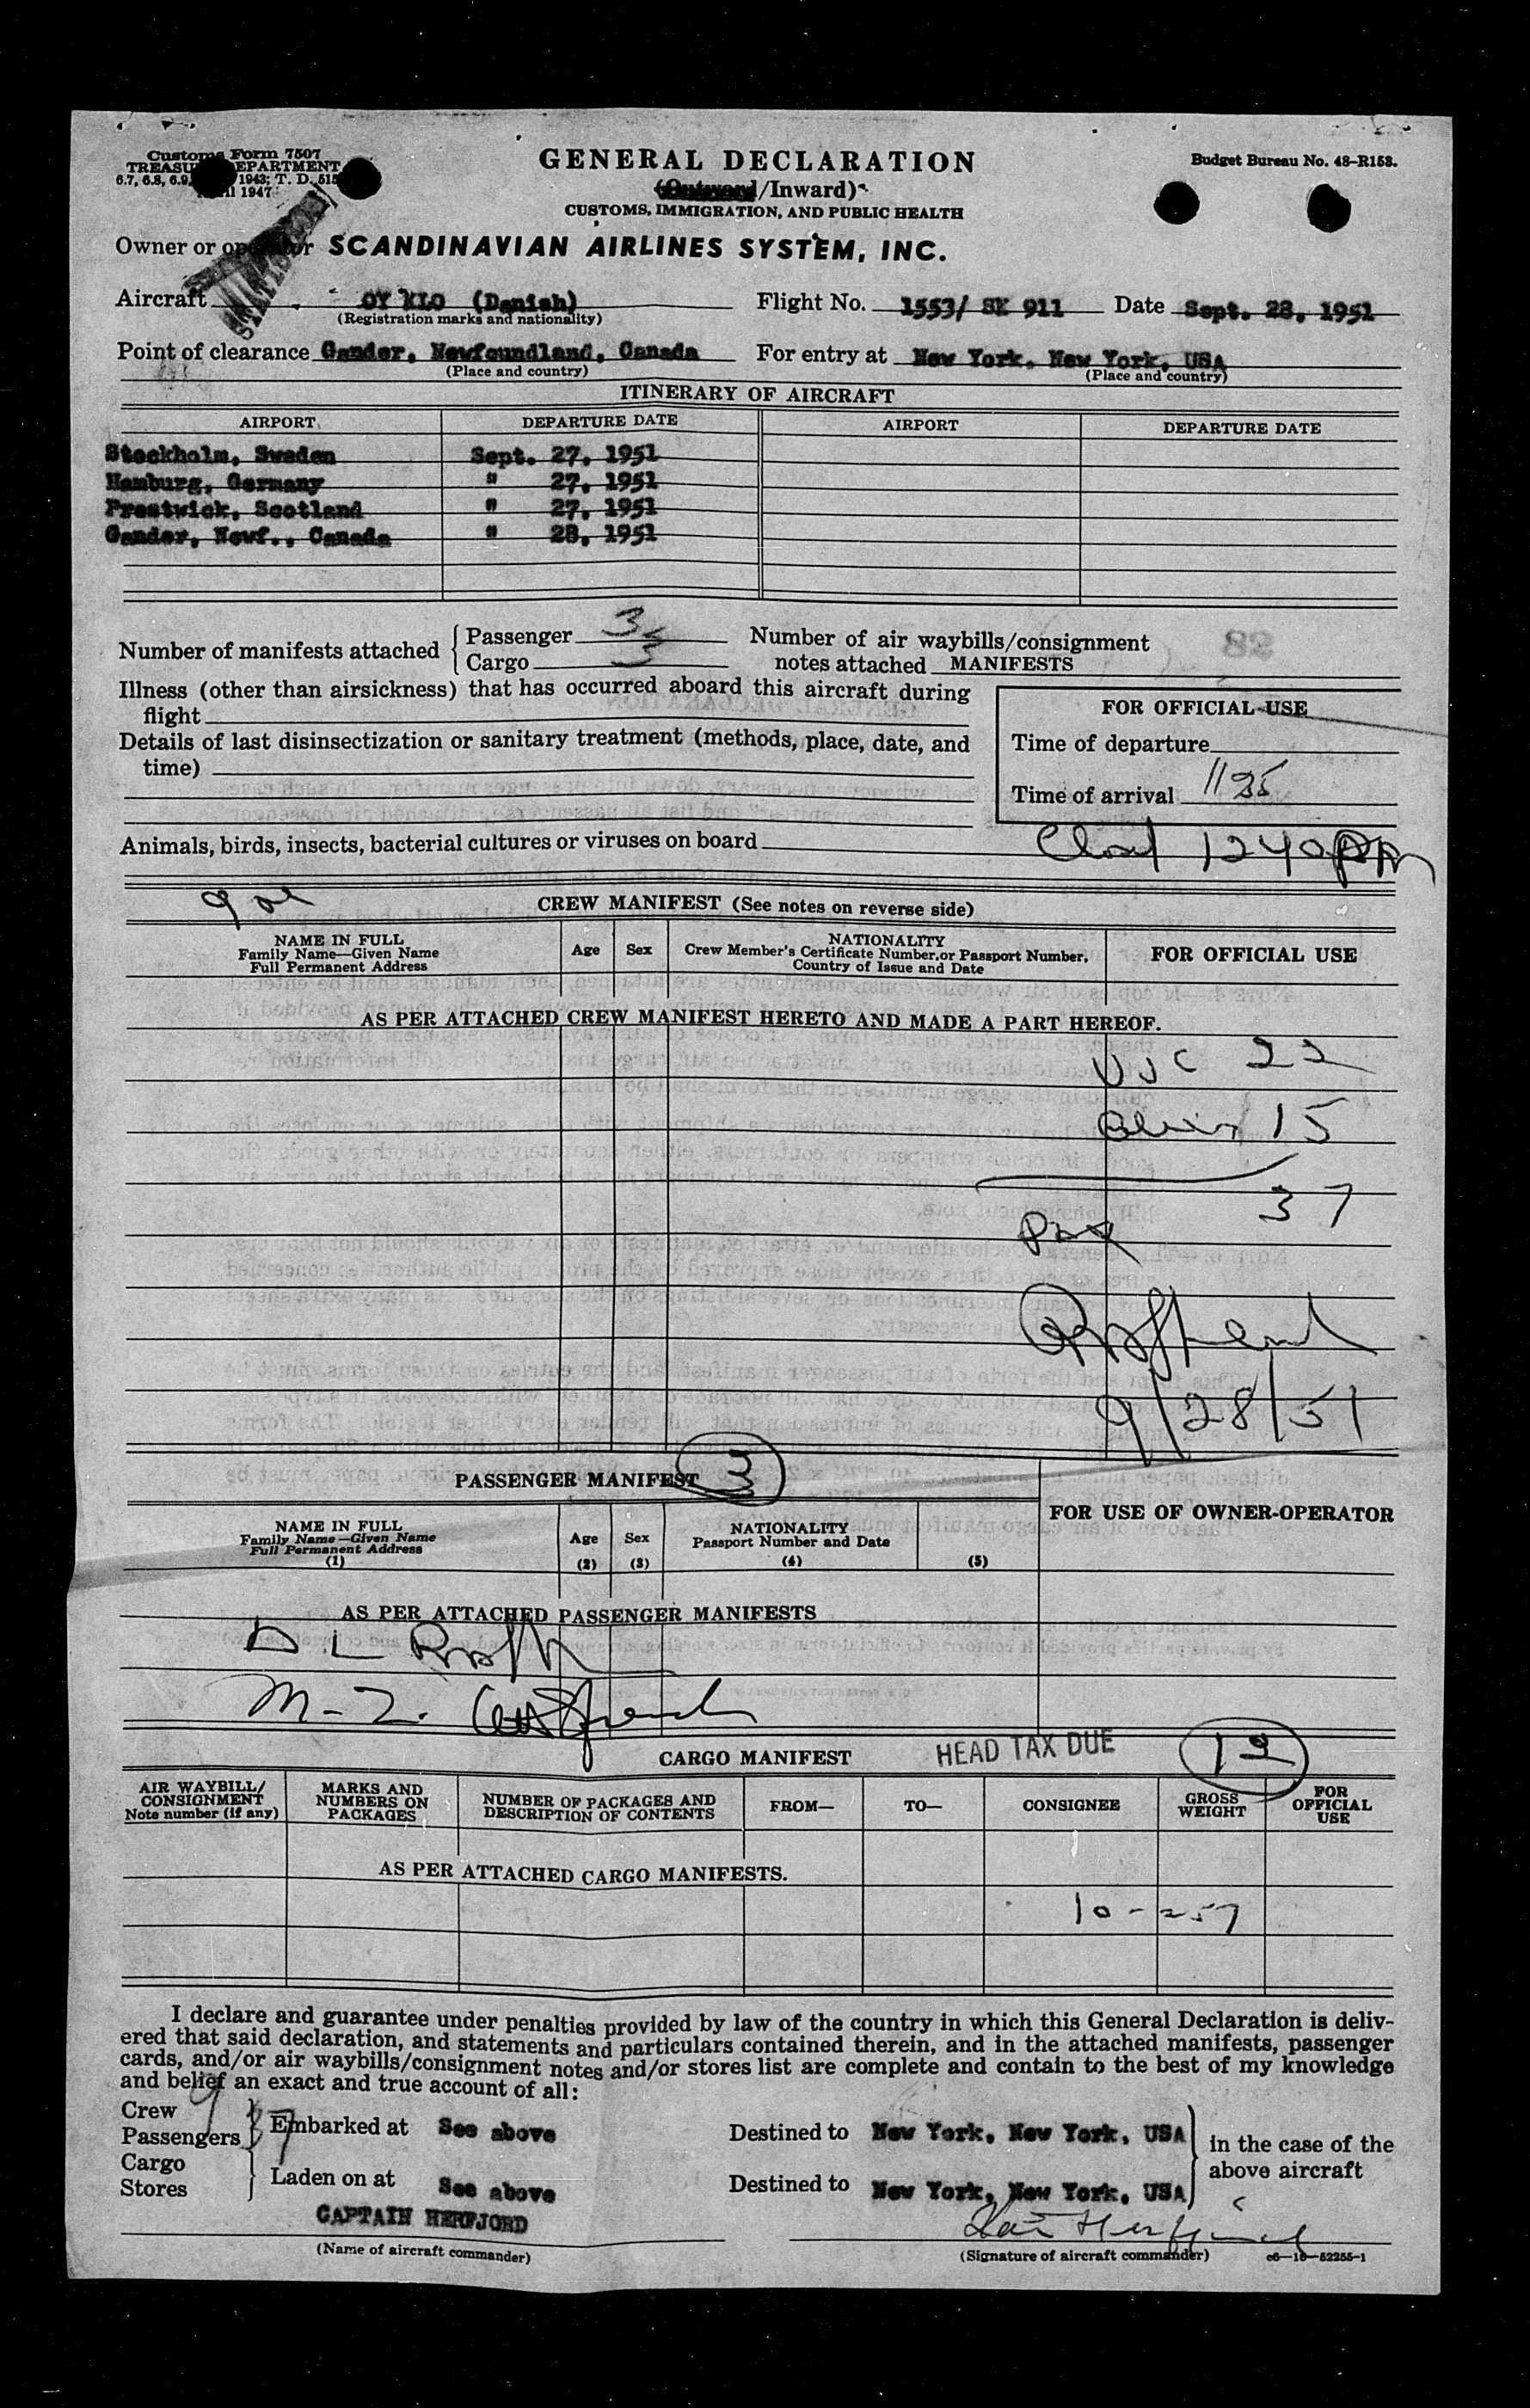 Customs Form 7507
TREASU EPARTMENT
6.7, 6.8, 6.9, 1943; T. D. 515
il 1947
GENERAL DECLARATION
(Outward/Inward)
CUSTOMS, IMMIGRATION, AND PUBLIC HEALTH
Budget Bureau No. 48-R158.
Owner or operator SCANDINAVIAN AIRLINES SYSTEM, INC.
Aircraft OY KLO (Danish) Flight No. 1553/ SK 911 Date Sept. 28, 1951
(Registration marks and nationality)
Point of clearance Gander, Newfoundland, Canada For entry at New York, New York, USA
(Place and country) (Place and country)
ITINERARY OF AIRCRAFT
AIRPORT DEPARTURE DATE AIRPORT DEPARTURE DATE
Stockholm, Sweden Sept. 27, 1951
Hamburg, Germany " 27, 1951
Prestwick, Scotland " 27, 1951
Gander, Newf., Canada " 28, 1951
Number of manifests attached { Passenger 3
Cargo 3
Number of air waybills/consignment
notes attached MANIFESTS
28
Illness (other than airsickness) that has occurred aboard this aircraft during
flight
Details of last disinsectization or sanitary treatment (methods, place, date, and
time)
FOR OFFICIAL USE
Time of departure
Time of arrival 1125
Animals, birds, insects, bacterial cultures or viruses on board
1240 pm
CREW MANIFEST (See notes on reverse side)
NAME IN FULL
Family Name—Given Name
Full Permanent Address
Age Sex
NATIONALITY
Crew Member's Certificate Number, or Passport Number,
Country of Issue and Date
FOR OFFICIAL USE
AS PER ATTACHED CREW MANIFEST HERETO AND MADE A PART HEREOF.
USC 22
Alien 15
37
Pax
9/28/51
PASSENGER MANIFEST 3
FOR USE OF OWNER-OPERATOR
NAME IN FULL
Family Name—Given Name
Full Permanent Address
(1)
Age
(2)
Sex
(3)
NATIONALITY
Passport Number and Date
(4)
(5)
AS PER ATTACHED PASSENGER MANIFESTS
D L
M-
CARGO MANIFEST HEAD TAX DUE 12
AIR WAYBILL/
CONSIGNMENT
Note number (if any)
MARKS AND
NUMBERS ON
PACKAGES
NUMBER OF PACKAGES AND
DESCRIPTION OF CONTENTS
FROM— TO— CONSIGNEE
GROSS
WEIGHT
FOR
OFFICIAL
USE
AS PER ATTACHED CARGO MANIFESTS.
10-257
I declare and guarantee under penalties provided by law of the country in which this General Declaration is deliv-
ered that said declaration, and statements and particulars contained therein, and in the attached manifests, passenger
cards, and/or air waybills/consignment notes and/or stores list are complete and contain to the best of my knowledge
and belief an exact and true account of all:
Crew 9
Passengers 37 } Embarked at See above Destined to New York, New York, USA
Cargo
Stores } Laden on at See above Destined to New York, New York, USA
in the case of the
above aircraft
CAPTAIN HERFJORD
(Name of aircraft commander) (Signature of aircraft commander) c6—16—52255-1